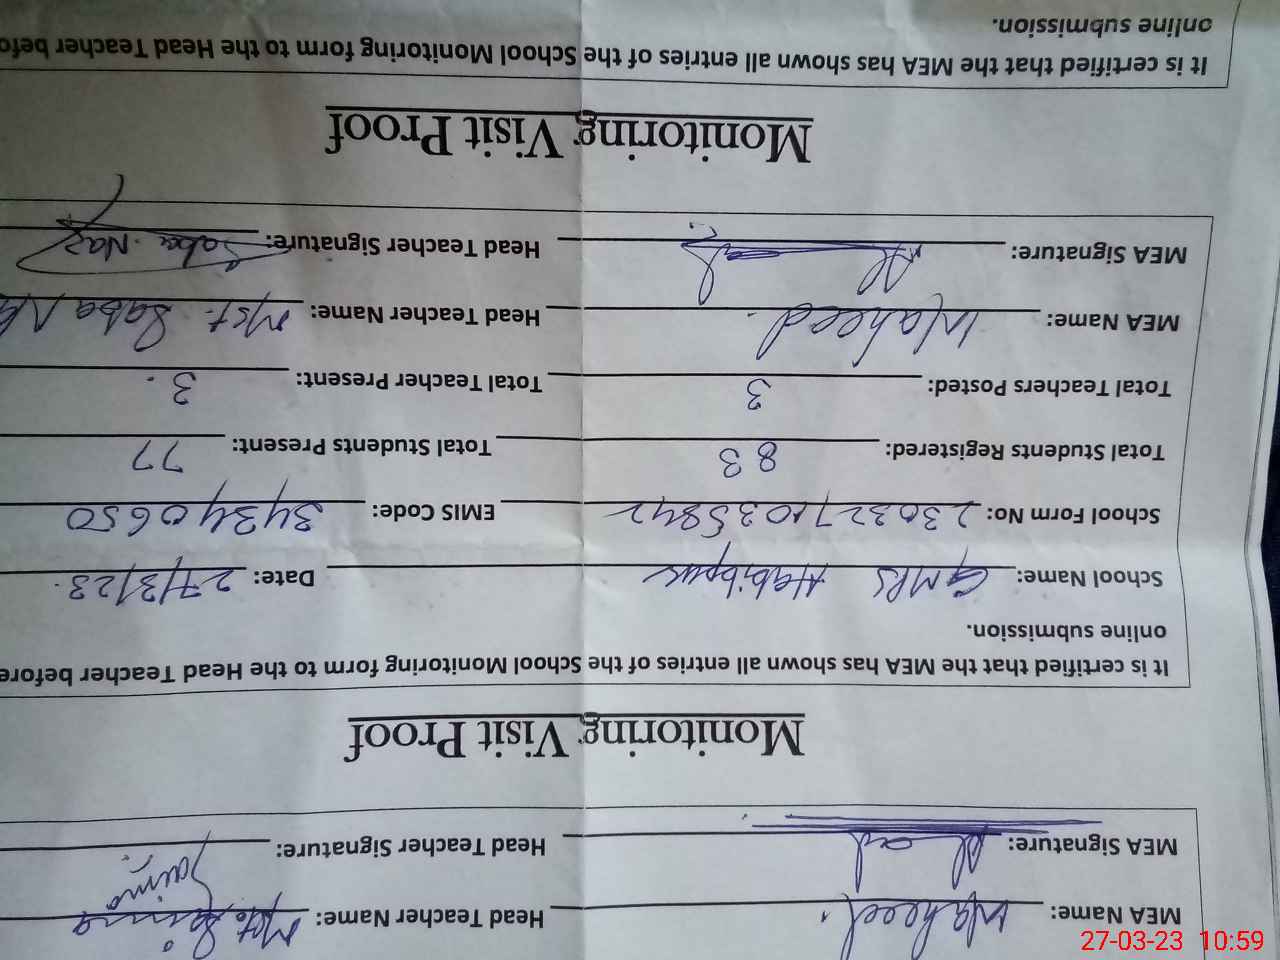 MEA Name: Waheed. Head Teacher Name: Mst. Saima
MEA Signature: Head Teacher Signature: Saima
Monitoring Visit Proof
It is certified that the MEA has shown all entries of the School Monitoring form to the Head Teacher before
online submission.
School Name: GMPS Habibpur Date: 27/3/23.
School Form No: EMIS Code: 34340650
Total Students Registered: 83 Total Students Present: 77
Total Teachers Posted: 3 Total Teacher Present: 3.
MEA Name: Waheed. Head Teacher Name: Mst. Saba
MEA Signature: Head Teacher Signature: Saba Naz
Monitoring Visit Proof
It is certified that the MEA has shown all entries of the School Monitoring form to the Head Teacher
online submission.
27-03-23 10:59